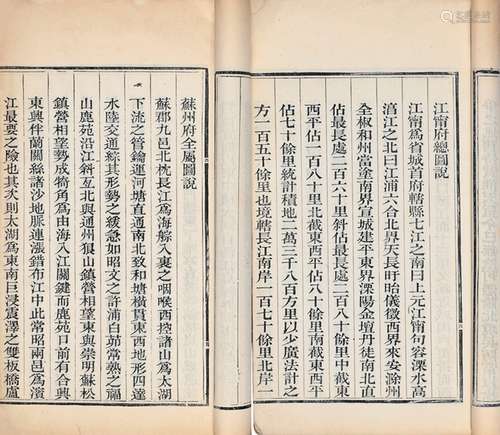 江甯府總圖說
江甯爲省城首府轄縣七江之南曰上元江甯句容溧水高
淯江之北曰江浦六合北界天長盱眙儀徵西界來安滁州
全椒和州當塗南界宣城建平東界溧陽金壇丹徒南北直
佔最長處二百六十里斜佔最長處二百八十餘里中截東
西平佔一百八十里北截東西平佔一百八十餘里南截東西平
佔七十餘里統計積地二萬三千八百方里以少廣法計之
方一百五十餘里也境轄長江南岸一百七十餘里北岸一
蘇州府全屬圖說
蘇郡九邑北枕長江爲海艘入裏之咽喉西控諸山爲太湖
下流之管鑰運河塘直通南北致和塘橫貫東西地形四達
水陸交通綜其形勢之緩急如昭文之許浦白茆常熟之福
山鹿苑沿江斜互北與通州狼山鎮營相望東與崇明蘇松
鎮營相望勢成犄角爲由海入江關鍵而鹿苑口前有合興
東興伴蘭關絲諸沙地脈連漲錯布江中此常昭兩邑爲濱
江最要之險也其次則太湖爲東南巨浸震澤之雙板橋盧